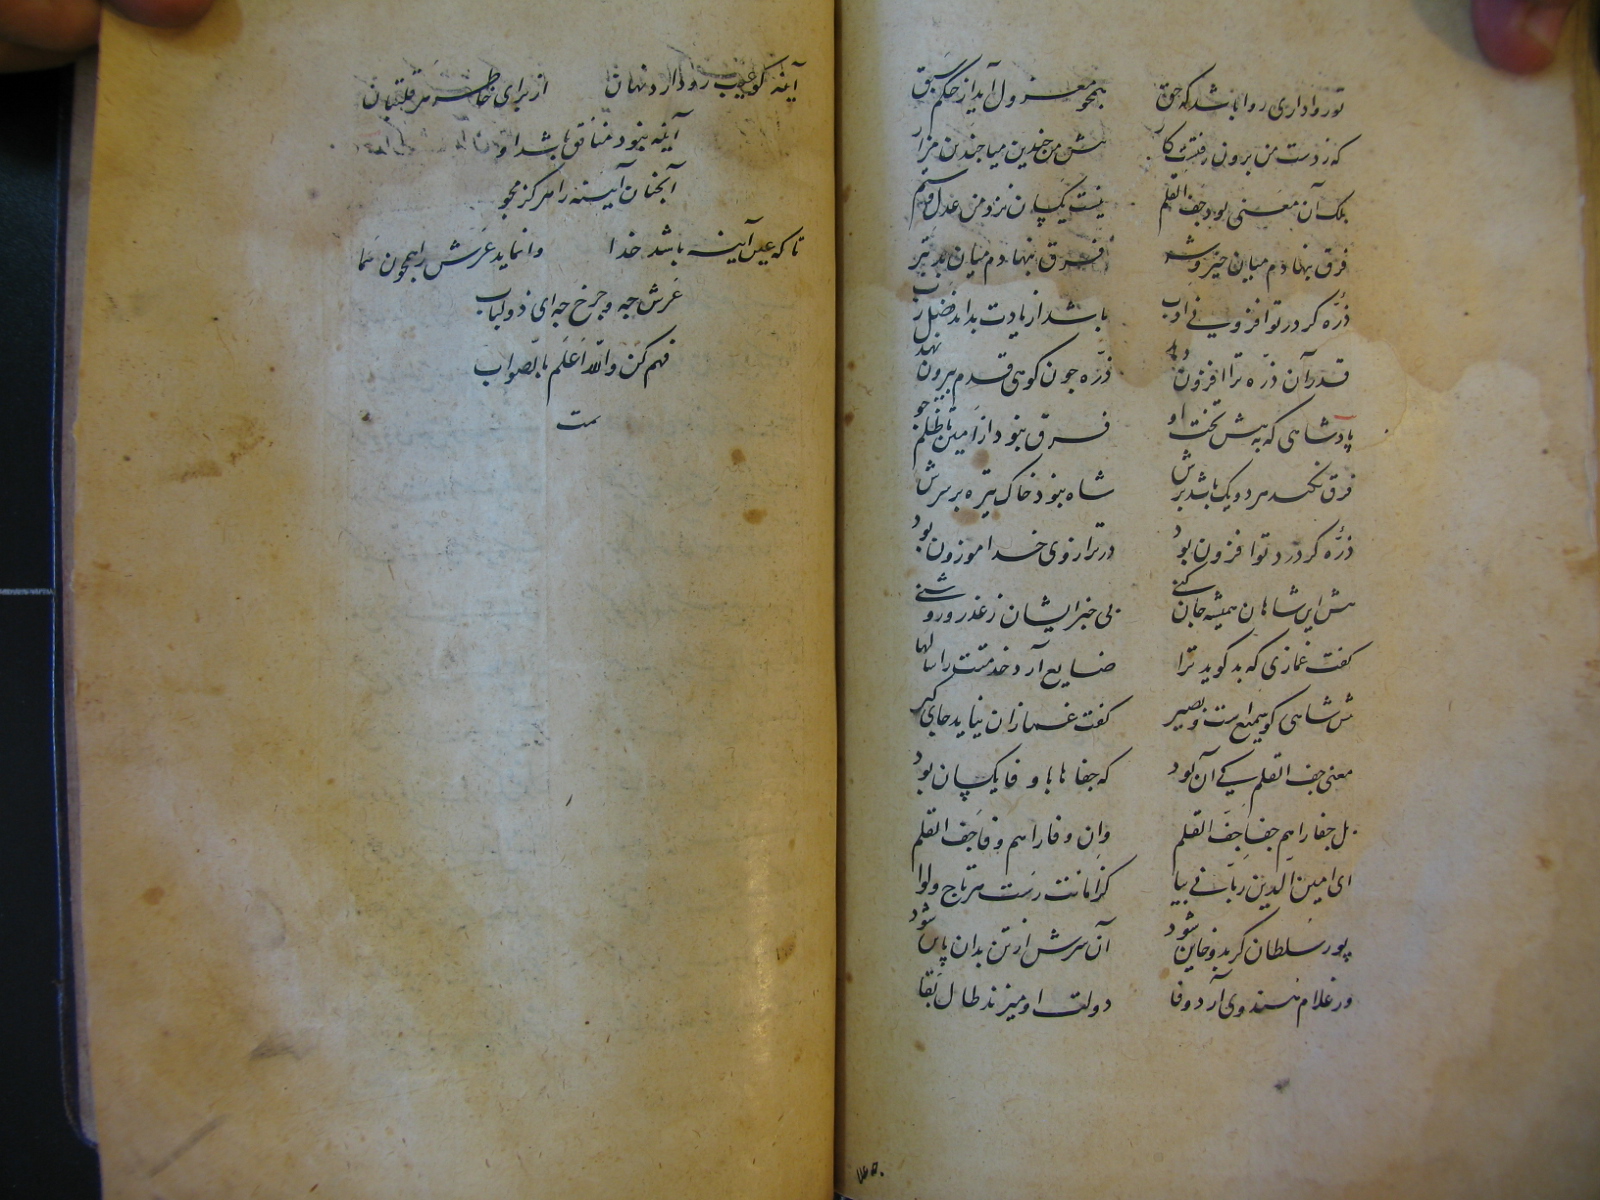 تو روا داری روا باشد که حق همچو معزول آید از حکم سبق
که ز دست من برون رفتست کار پیش من چندین میا چندین مزار
بلک آن معنی بود جف القلم نیست یکسان نزد من عدل و ستم
فرق بنهادم میان خیر و شر فرق بنهادم میان بد و بتر
ذره گر در تو افزونی ادب باشد از یارت بداند فضل رب
قدر آن ذره ترا افزون دهد ذره جون کوهی قدم بیرون نهد
پادشاهی که به پیش تخت او فرق نبود از امین تا ظلم جو
فرق نکند هر دو یک باشد برش شاه نبود خاک تیره بر سرش
ذره گر درد تو افزون بود در ترازوی خدا موزون بود
پیش این شاهان همیشه جان کنی بی خبر ایشان ز غدر و روشنی
گفت غمازی که بد کوید ترا ضایع آرد خدمتت را سالها
پیش شاهی کو سمیع است و بصیر گفت غمازان نیاید جای کیر
معنی جف القلم کی آن بود که جفاها با وفا یکسان بود
بل جفا را هم جفا جف القلم وان وفا را هم وفا جف القلم
ای امین الدین ربانی بیا کز امانت رست هر تاج و لوا
پور سلطان کر بدو خاین شود آن سرش از تن بدان باین شود
ور غلام هندوی آرد وفا دولت او میزند طال بقا
آینه کو عیب رو دارد نهان از برای خاطر هر قلتبان
آینه نبود منافق باشد او
آنجنان آینه را هرکز مجو
تا که عین آینه باشد خدا وا نماید عرش را همجون سما
عرش جه و جرخ جه ای ذو لباب
فهم کن والله اعلم بالصواب
تمت